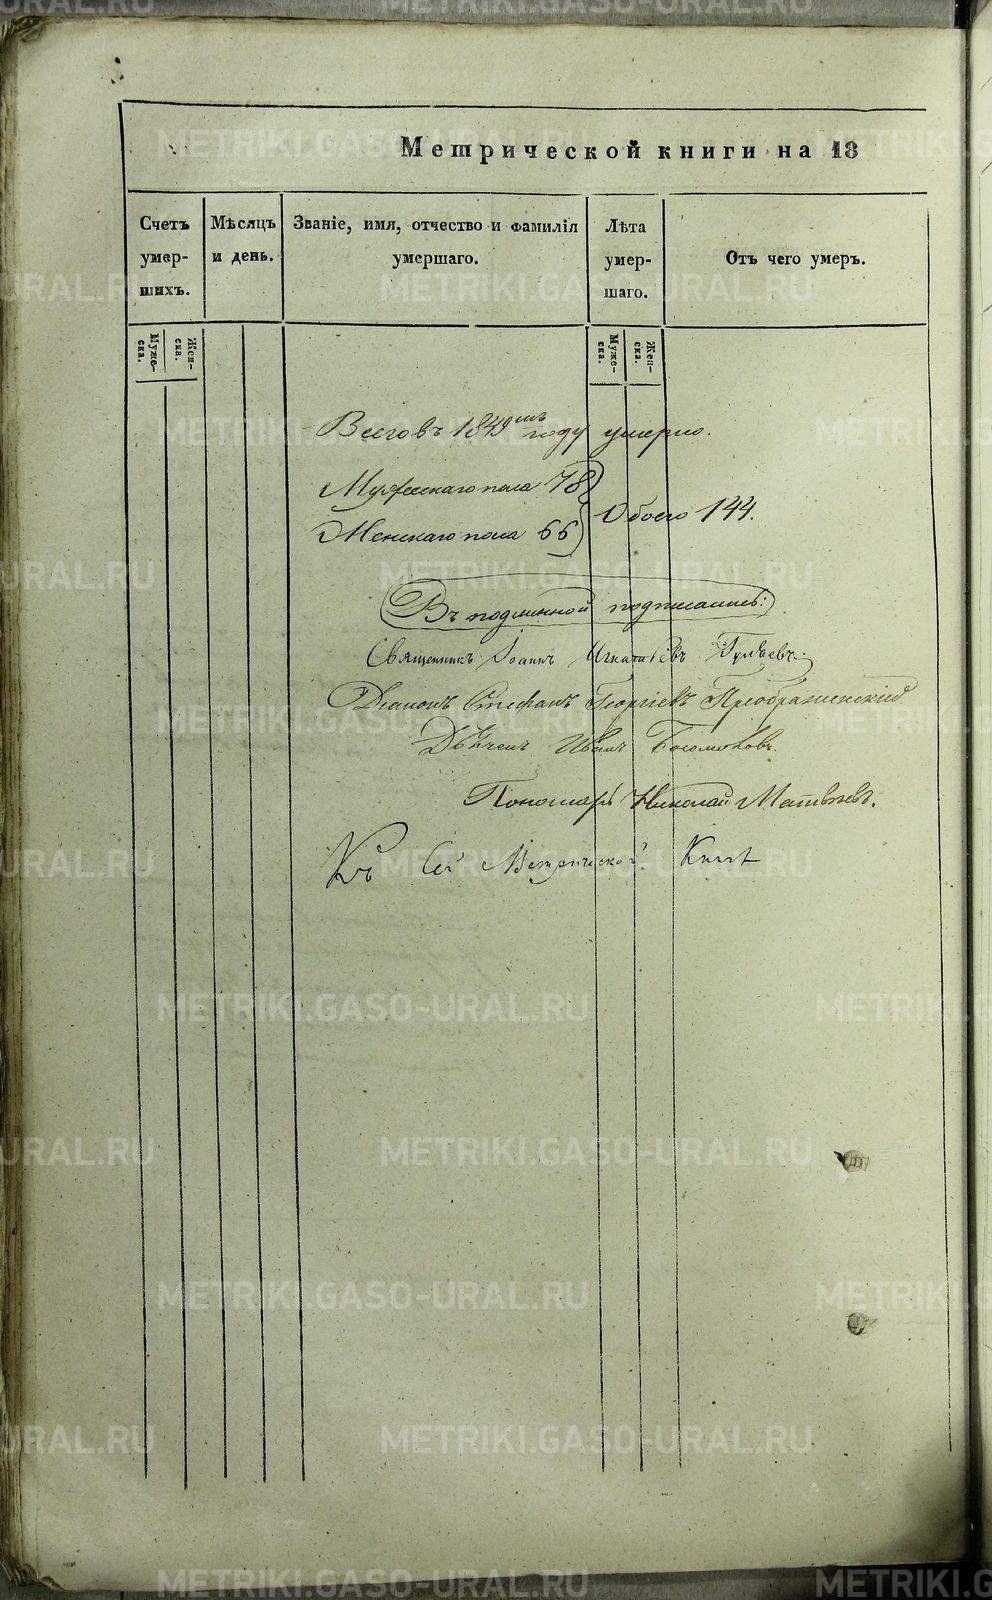 Метрической книги на 18
Счетъ умер- шихъ.
Мѣсяцъ и день.
Званіе, имя, отчество и фамилія умершаго.
Лѣта умер- шаго.
Отъ чего умеръ.
Муже- ска.
Жен- ска.
Муже- ска.
Жен- ска.
Всего въ 1849мъ году умерло.
Мужескаго пола 78
Женскаго пола 66
Обоего 144.
Въ подлинной подписались:
Священникъ Іоаннъ Игнатіевъ Гуляевъ.
Діаконъ Стефанъ Георгіевъ Преображенскій
Дьячекъ Иванъ Богомоловъ.
Пономарь Николай Матвѣевъ.
Къ Сей Метрической Книгѣ
METRIKI.GASO-URAL.RU